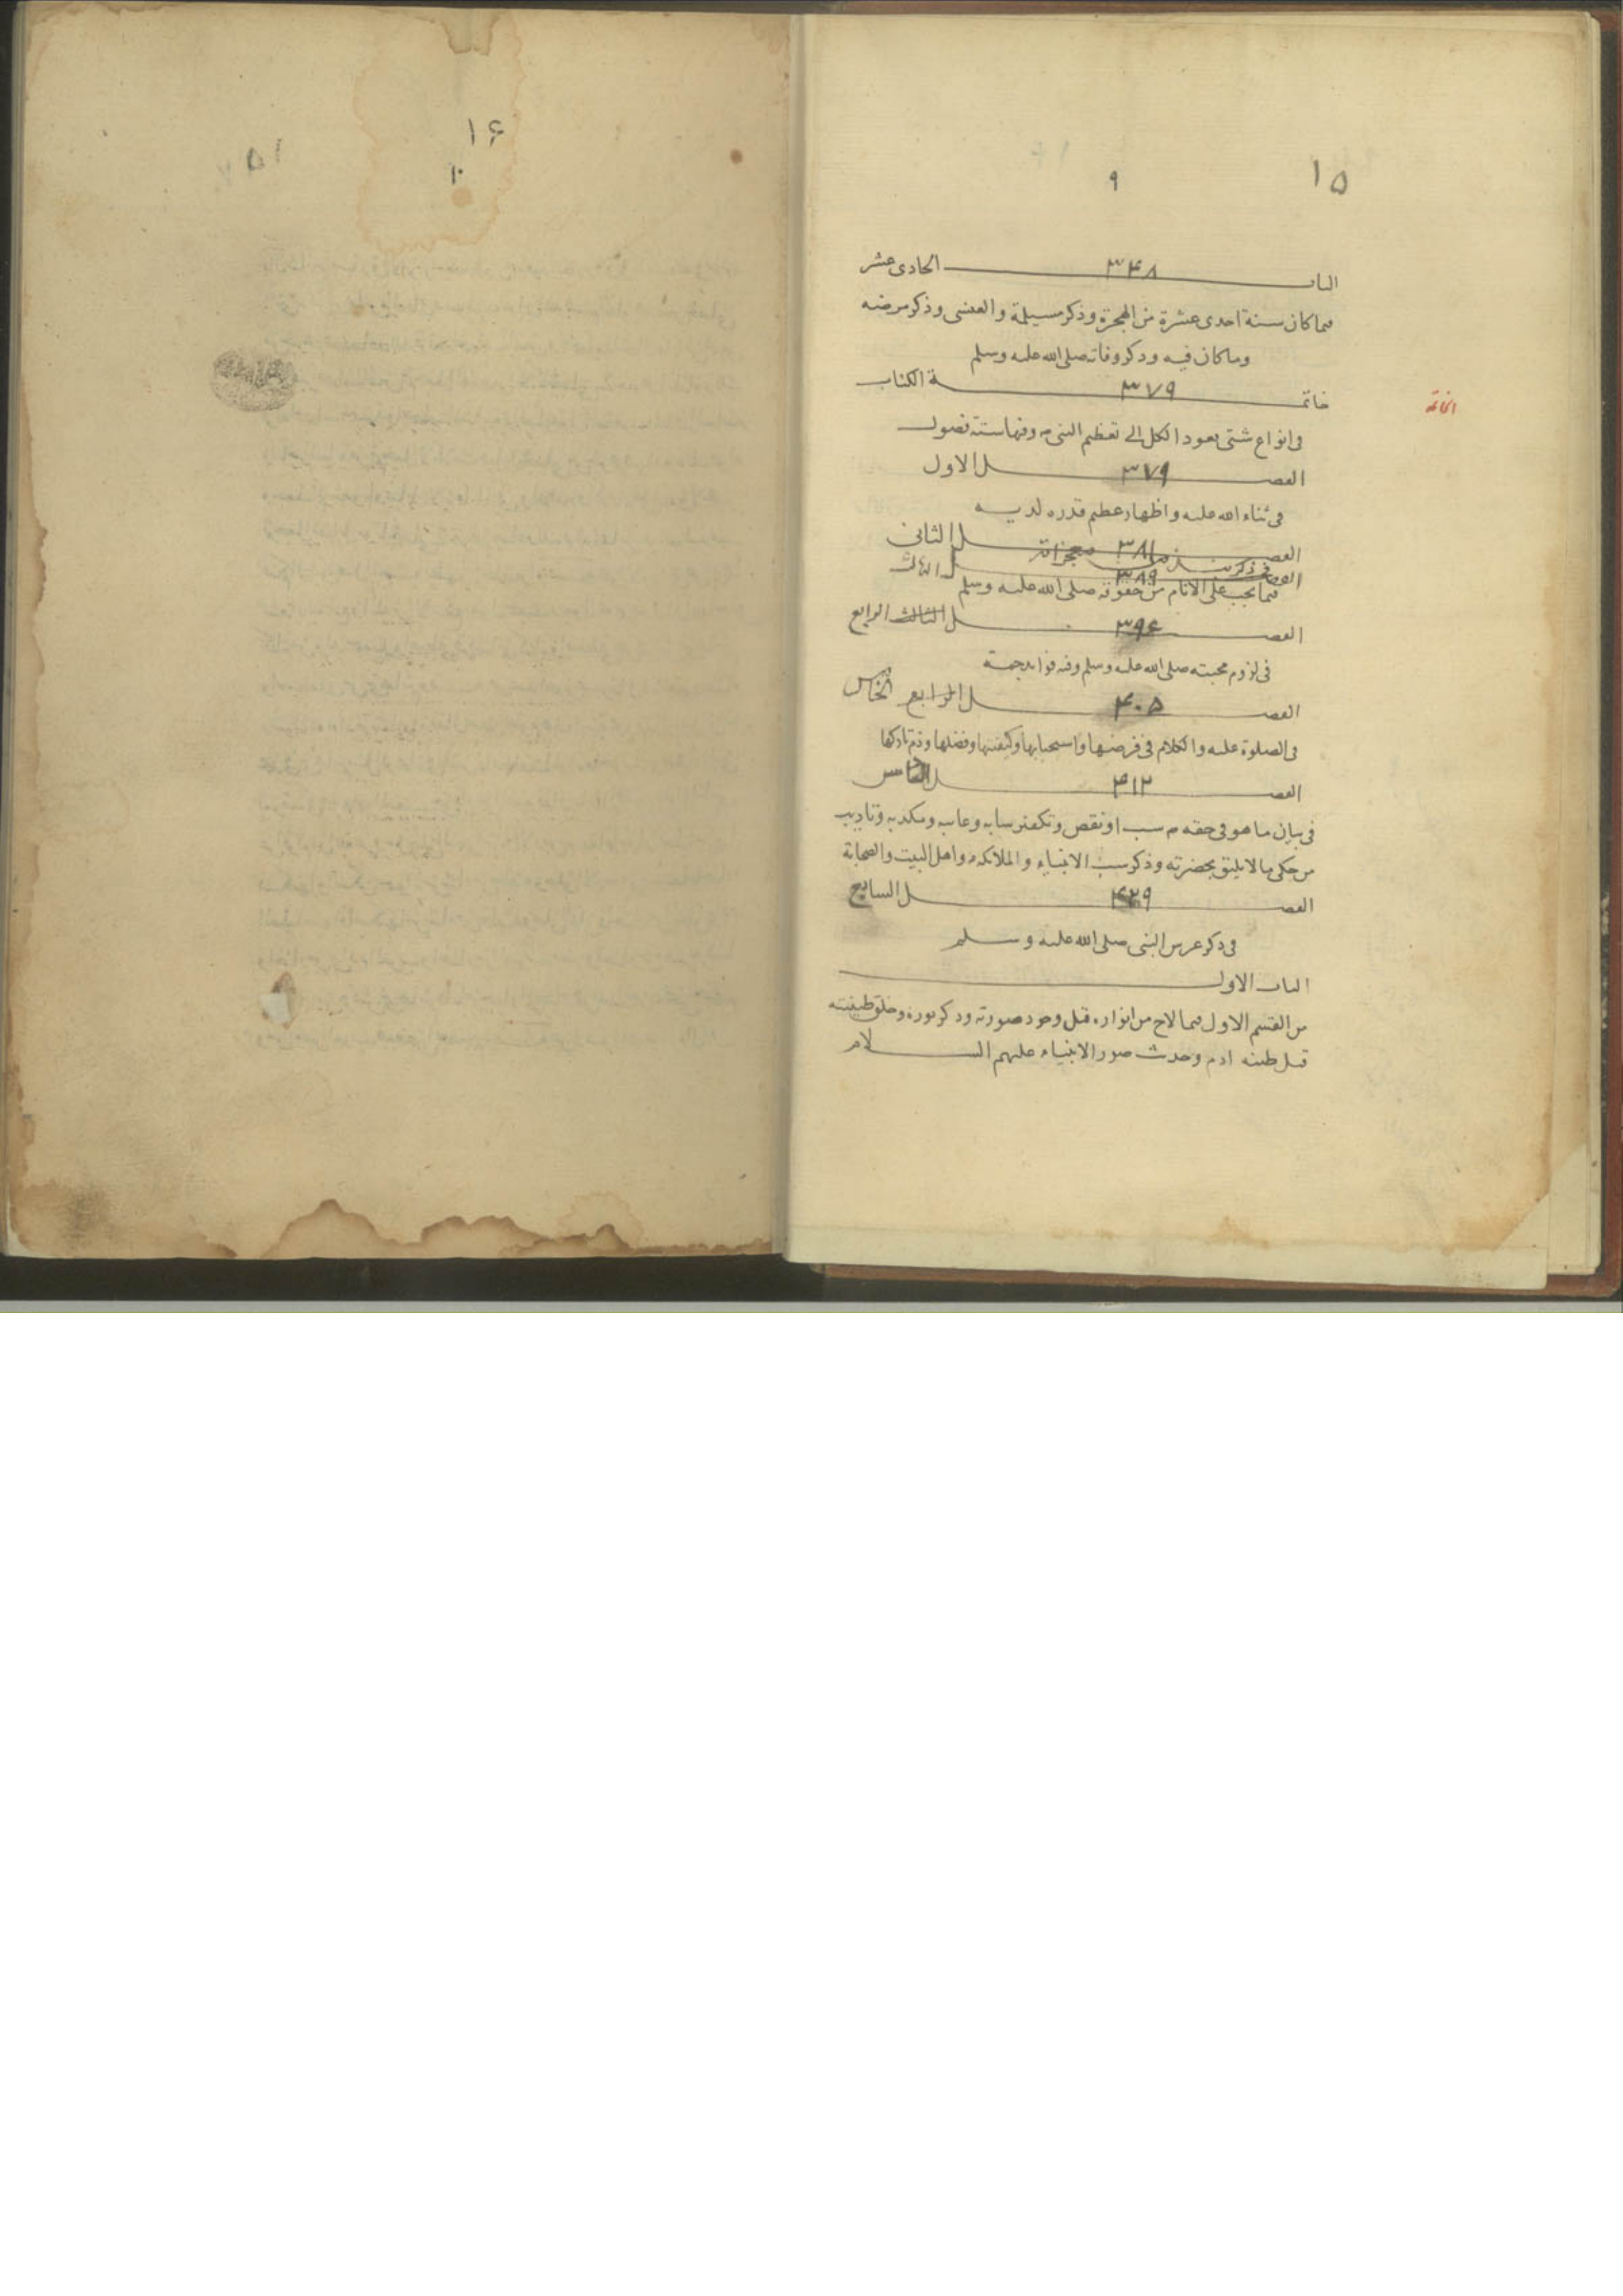 ١٥
٩
الباب ٣۴٨ الحادى عشر
فيما كان سنة احدى عشرة من الهجرة وذكر مسيلمة والعنسى وذكر مرضه
وما كان فيه وذكر وفاته صلى الله عليه وسلم
خاتمة ٣٧٩ الكتاب
الخاتمة
فى انواع شتى يعود الكل الى تعظيم النبى م وفيها ستة فصول
الفصل ٣٧٩ الاول
فى ثناء الله عليه واظهار عظيم قدره لديه
الفصل ٣٨١ الثانى
فى ذكر معجزاته
الفصل ٣٨٩ الثالث
فيما يجب على الانام من حقوقه صلى الله عليه وسلم
الفصل ٣٩۶ الثالث الرابع
فى لزوم محبته صلى الله عليه وسلم وفيه فوايد جمة
الفصل ۴٠۵ الرابع الخامس
فى الصلوة عليه والكلام فى فرضها واستحبابها وكيفيتها وفضلها وذم تاركها
الفصل ۴١٣
فى بيان ما هو فى حقه م سب او نقص وتكفير سابه وعايبه ومكذبه وتاديب
من حكى ما لا يليق بحضرته وذكر سب الانبياء والملائكة واهل البيت والصحابة
الفصل ۴٢٩ السابع
فى ذكر عرس النبى صلى الله عليه وسلم
الباب الاول
من القسم الاول فيما لاح من انواره قبل وجود صورته وذكر نوره وخلق طينته
قبل طينة ادم وحدث صور الانبياء عليهم السلام
١۶
١٠